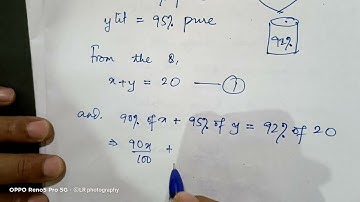 y lit = 95% pure
92%
From the Q,
x+y = 20 — ①
and. 90% of x + 95% of y = 92% of 20
⇒ 90x/100 +
OPPO Reno5 Pro 5G · ©LR photography